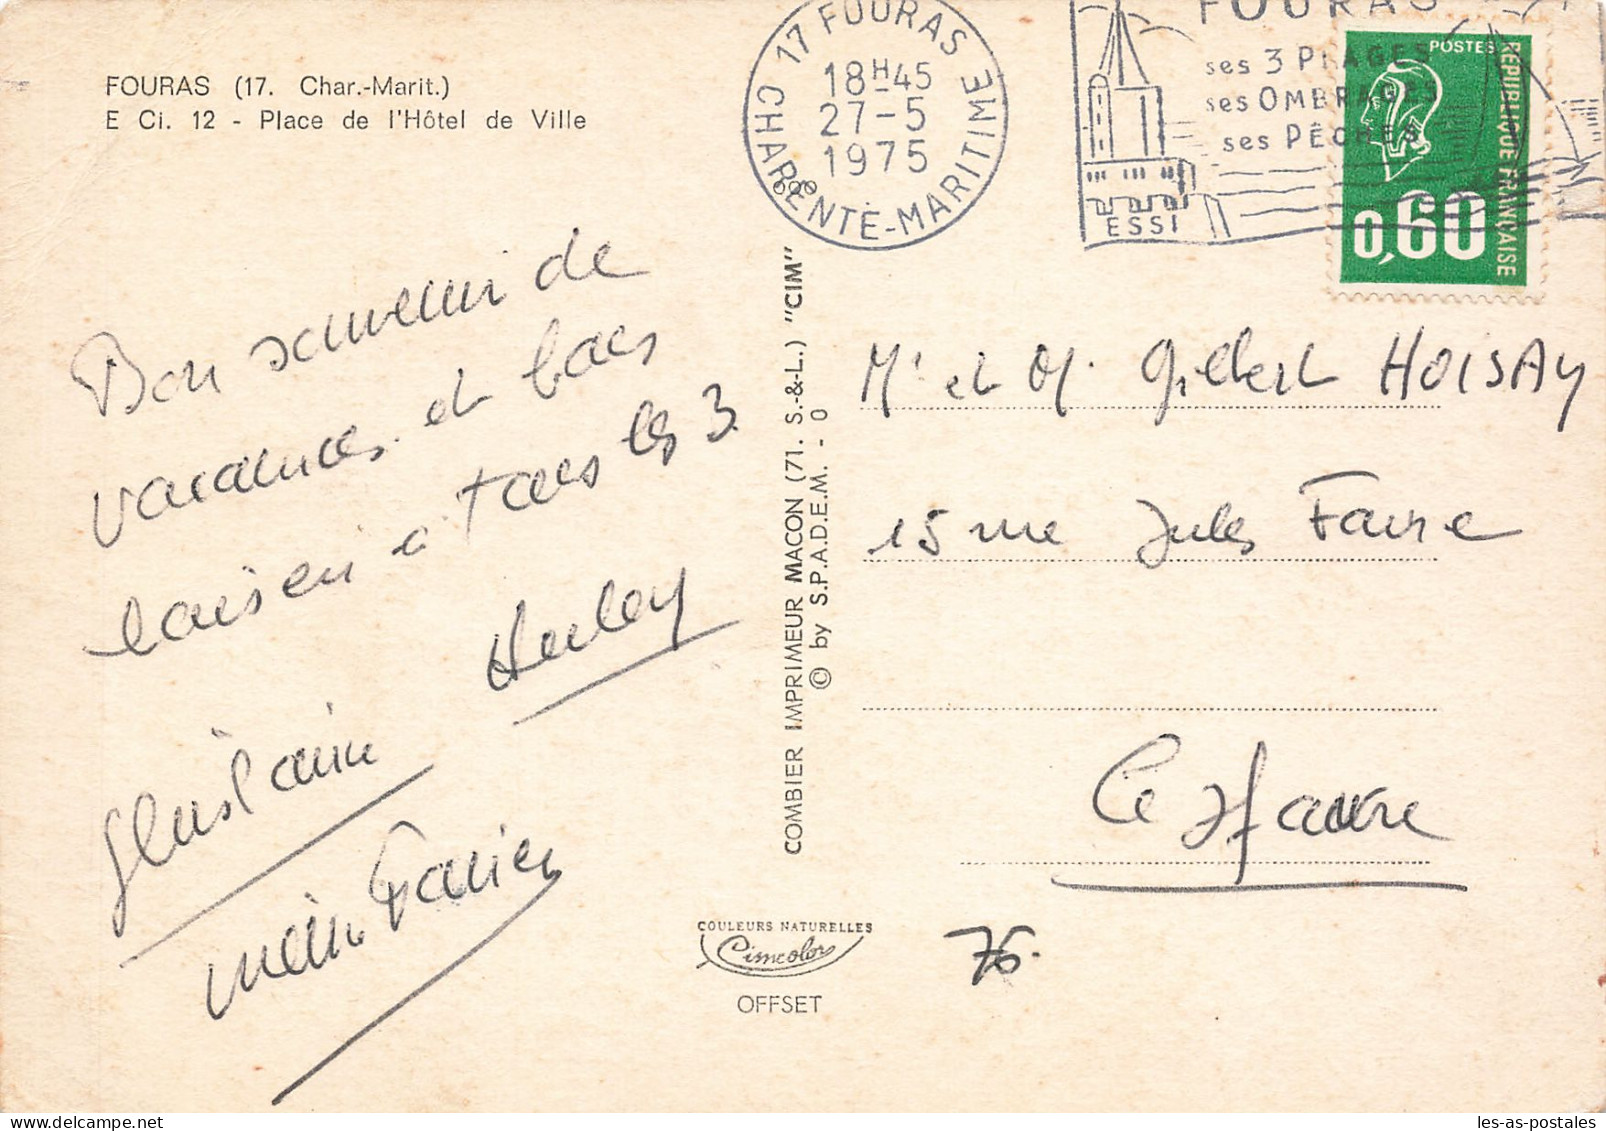 FOURAS (17. Char.-Marit.)
E Ci. 12 - Place de l'Hôtel de Ville
17 FOURAS
18H45
27-5
1975
CHARENTE-MARITIME
FOURAS
ses 3 PLAGES
ses OMBRAGES
ses PÊCHES
ESSI
POSTES
REPUBLIQUE FRANÇAISE
0,60
Bon souvenir de
vacances et bons
baisers à tous les 3
Ghislain
COMBIER IMPRIMEUR MACON (71. S.-&-L.) "CIM"
© by S.P.A.D.E.M. - 0
Mr et M. Gilbert HOISAY
15 rue Jules Favre
Le Havre
76.
COULEURS NATURELLES
Cimcolor
OFFSET
les-as-postales